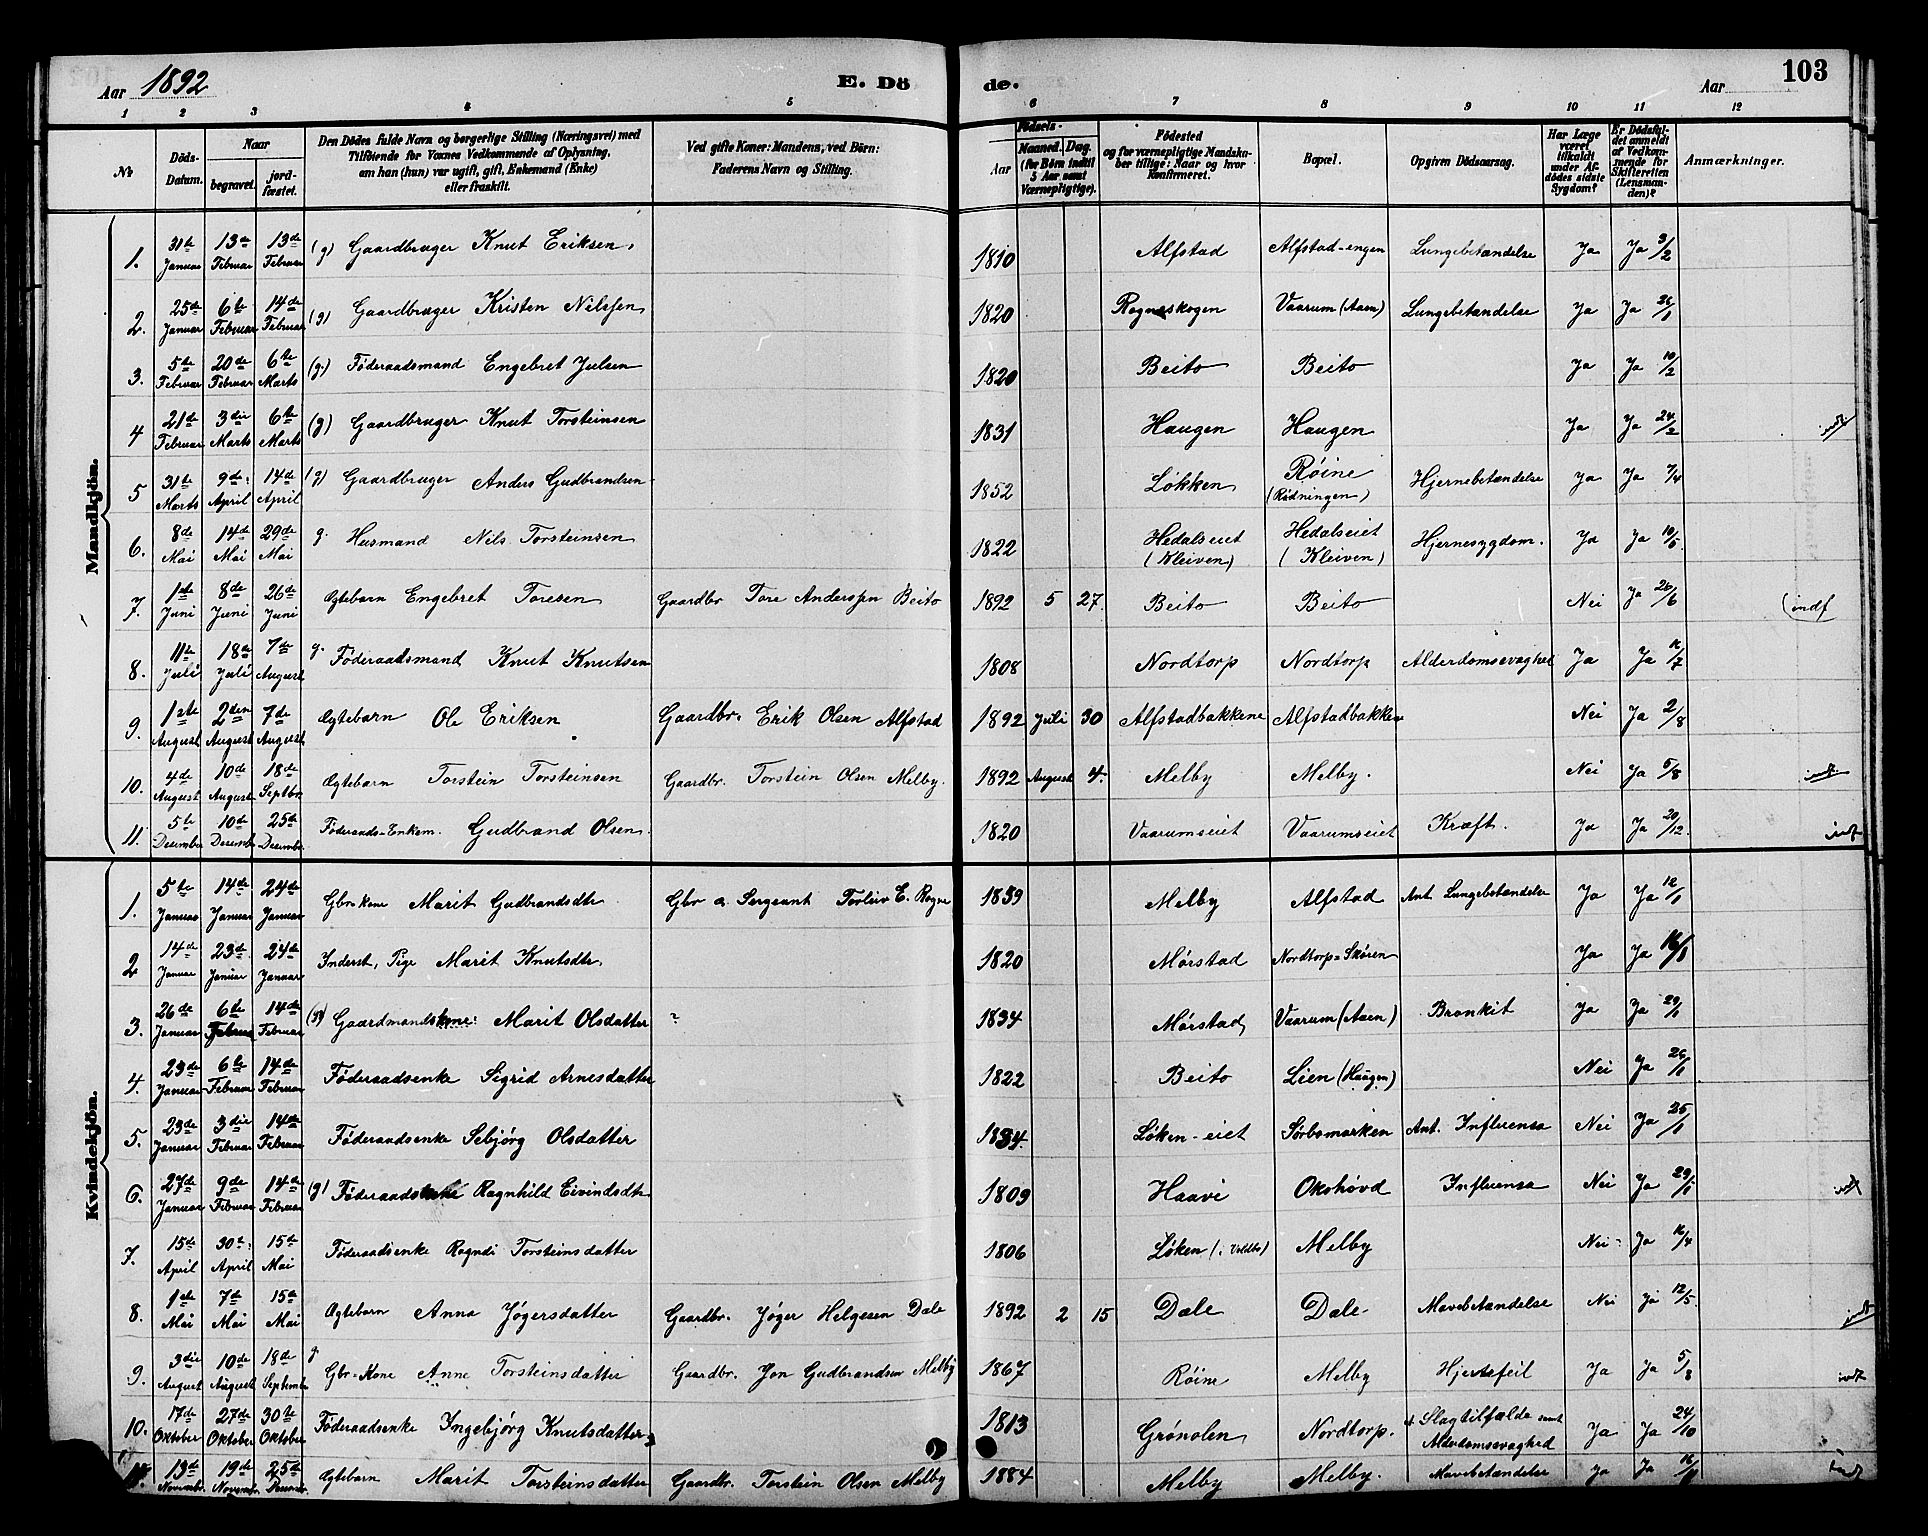 Aar 1892 E. Dö de. Aar 103
1 2 3 4 5 6 7 8 9 10 11 12
№ Döds-Datum. Naar begravet. jord-fæstet. Den Dödes fulde Navn og borgerlige Stilling (Næringsvei) med Tilföiende for Voxnes Vedkommende af Oplysning, om han (hun) var ugift, gift, Enkemand (Enke) eller fraskilt. Ved gifte Koner: Mandens, ved Börn: Faderens Navn og Stilling. Födsels- Aar Maaned. Dag. (for Börn indtil 5 Aar samt Værnepligtige). Födested og for værnepligtige Mandskaber tillige: Naar og hvor konfirmeret. Bopæl. Opgiven Dödsaarsag. Har Læge været tilkaldt under Afdödes sidste Sygdom? Er Dödsfaldet anmeldt af Vedkommende for Skifteretten (Lensmanden)? Anmærkninger.
Mandkjön.
1. 31te Januar 13de Februar 13de Februar (g) Gaardbruger Knut Eriksen. 1810 Alfstad Alfstad-engen Lungebetændelse Ja Ja 3/2
2. 25de Januar 6te Februar 14de Februar (g) Gaardbruger Kristen Nilssen 1820 Rogneskogen Vaarum (Aaen) Lungebetændelse Ja Ja 26/1
3. 5te Februar 20de Februar 6te Marts (g) Føderaadsmand Engebret Julsen 1820 Beito Beito Ja Ja 10/2
4 21de Februar 3die Marts 6te Marts (g) Gaardbruger Knut Torsteinsen 1831 Haugen Haugen Ja Ja 24/2 indf
5 31te Marts 9de April 14de April (g) Gaardbruger Anders Gudbrandsen 1852 Løkken Røine (Rødningen) Hjernebetændelse Ja Ja 7/4
6. 8de Mai 14de Mai 29de Mai g. Husmand Nils Torsteinsen 1822 Hedalseiet (Kleiven) Hedalseiet (Kleiven) Hjernesygdom. Ja Ja 10/5
7. 1ste Juni 8de Juni 26de Juni Ægtebarn Engebret Toresen Gaardbr Tore Anderssen Beito 1892 5 27. Beito Beito Nei Ja 26/6 indf
8. 11te Juli 18de Juli 7de August g. Føderaadsmand Knut Knutsen 1808 Nordtorp Nordtorp Alderdomssvaghed Ja Ja /7
9. 1ste August 2den August 7de August Ægtebarn Ole Eriksen Gaardbr. Erik Olsen Alfstad 1892 Juli 30 Alfstadbakkene Alfstadbakkene Nei Ja 2/8
10. 4de August 10de August 18de Septbr Ægtebarn Torstein Torsteinsen Gaardbr. Torstein Olsen Melby. 1892 August 4. Melby Melby. Nei Ja 5/8 indf
11. 5te Desember 10de Desembr 25de Desembr Føderaads-Enkem. Gudbrand Olsen. 1820 Vaarumseiet Vaarumseiet Kræft. Ja Ja 20/12. indf
Kvindekjön.
1. 5te Januar 14de Januar 24de Januar Gbrskone Marit Gudbrandsdtr Gbr o. Sergeant Torleiv E. Rogne 1859 Melby Alfstad Ant. Lungebetændelse Ja Ja 12/1
2 14de Januar 23de Januar 24de Januar Inderst, Pige Marit Knutsdtr. 1820 Mørstad Nordtorp-Skøren Ja Ja 16/1
3. 26de Januar 6te Februar 14de Februar (g) Gaardmandskone: Marit Olsdatter ? 1834 Mørstad Vaarum (Aaen) Bronkit Ja Ja 29/1
4. 23de Januar 6te Februar 14de Februar Føderaadsenke Sigrid Arnesdatter 1822 Beito Lien (Haugen) Nei Ja 26/1
5. 23de Januar 3die Februar 14de Februar Føderaadsenke Sebjørg Olsdatter 1834. Løken-eiet Sørbømarken Ant. Influensa Nei Ja 25/1
6. 27de Januar 9de Februar 14de Februar (g) Føderaadskone Ragnhild Eivindsdtr 1809 Haavi Okshovd Influensa Nei Ja 29/1 indf
7. 15de April 30te April 15de Mai Føderaadsenke Ragndi Torsteinsdatter 1806 Løken (i Voldbo) Melby Nei Ja 16/4
8. 1ste Mai 7de Mai 15de Mai Ægtebarn Anna Jøgersdatter Gaardbr. Jøger Helgesen Dale 1892 2 15 Dale Dale Mavebetændelse Nei Ja 12/5. indf
9. 3die August 10de August 18de Septembr g. Gbr-Kone Anne Torsteinsdatter Gaardbr. Jon Gudbrandsen Melby 1867 Røine Melby Hjertefeil Ja Ja 5/8 indf
10. 17de Oktober 27de Oktober 30te Oktober Føderaadsenke Ingebjørg Knutsdatter 1813 Grønolen Nordtorp. Slagtilfælde samt Alderdomssvaghed Ja Ja 24/10
11. 13de Novembr. 19de Novembr. 25de Desembr. Ægtebarn Marit Torsteinsdatter Gaardbr. Torstein Olsen Melby 1884 Melby Melby. Mavebetændelse Ja Ja 16/11 indf